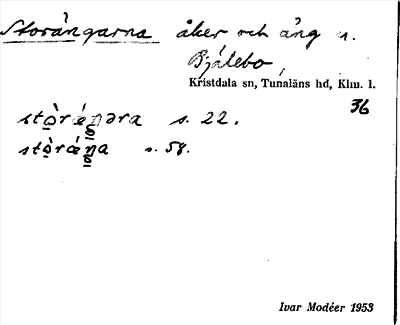 Storängarna åker och äng u.
Bjälebo,
Kristdala sn, Tunaläns hd, Klm. l.
36
stò̱rǽŋəra s. 22.
stò̱rǽŋa s. 58.
Ivar Modéer 1953